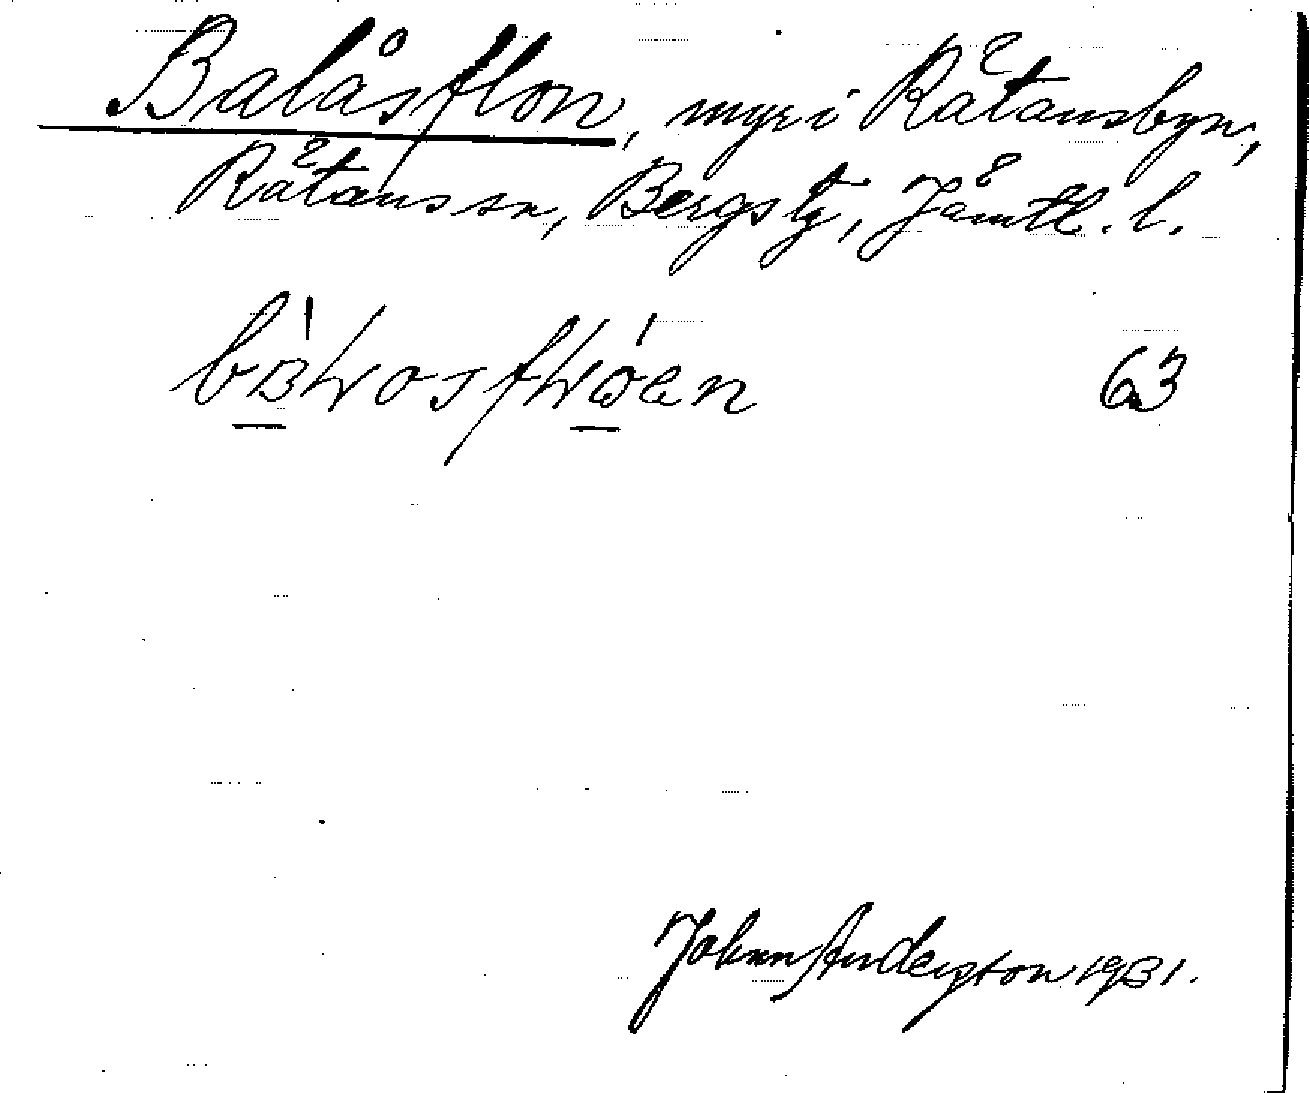 Balåsflon, myr i Rätansbyn,
Rätans sn, Bergs tg, Jämtl. l.
63
Johan Anderson 1931.